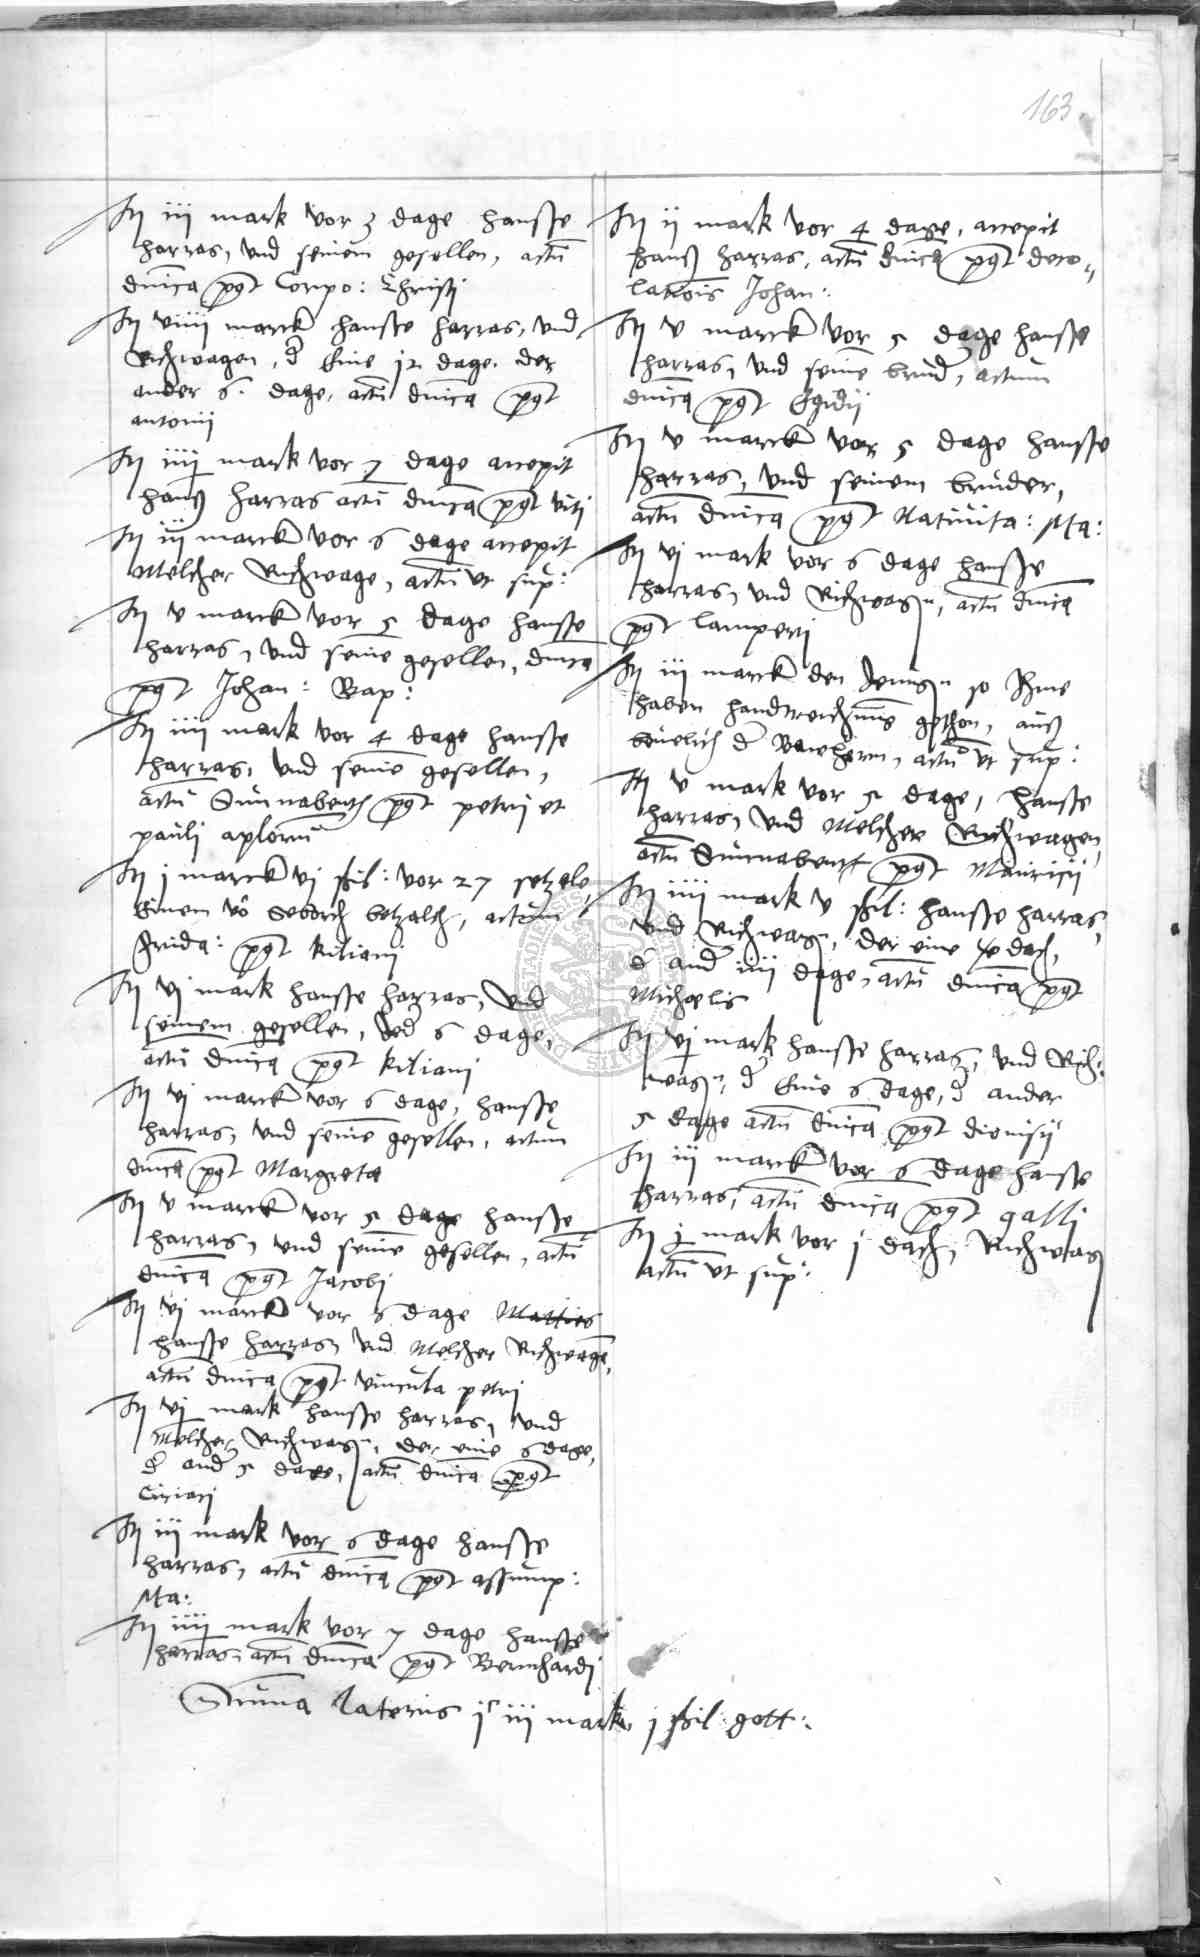 163
It iij mark vor 3 dage hansse
harras, vnd seinem gesellen, actū
dnīca pꝰt Corpo: Christj
It viiij marck hansse harras, vnd
Richwagen, d Eine 12 dage, der
ander 6. dage, actū dnīca pꝰt
antonij
It iiij mark vor 7 dage accepit
hanß harras actū dnīca pꝰt vitj
It iij marck vor 6 dage accepit
Melcher Richwage, actū vt sup:
It v marck vor 5 dage hansse
harras, vnd seinē gesellen, dnīca
pꝰt Johan: Bap:
It iiij mark vor 4 dage hansse
harras, vnd seinē gesellen,
actū Sunnabent pꝰt petrj et
paulj aplorū
It j marck vj ßil: vor 27
Einem vō betzalth, actum
frida: pꝰt kilianj
It vj mark hansse harras, vnd
seinem gesellen, vor 6 dage,
actū dnīca pꝰt kilianj
It vj marck vor 6 dage, hansse
harras, vnd seinē gesellen, actum
dnīca pꝰt Margreta
It v marck vor 5 dage hansse
harras, vnd seinē gesellen, actū
dnīca pꝰt Jacobj
It vj marck vor 6 dage Matties
hansse harras, vnd Melcher Richwagē,
actū dnīca pꝰt vincula petrj
It vj mark hansse harras, vnd
Melcher Richwagn, der eine 6 dage,
d and 5 dage, actū dnīca pꝰt
Ciriacj
It iij mark vor 6 dage hansse
harras, actū dnīca pꝰt assump:
Ma:
It iiij mark vor 7 dage hansse
harras, actū dnīca pꝰt Bernhardj
It ij mark vor 4 dage, accepit
hanß harras, actū dnīca pꝰt deco„
lationis Johan:
It v marck vor 5 dage hansse
harras, vnd seinē brud, actum
dnīca pꝰt Egidij
It v marck vor 5 dage hansse
harras, vnd seinem bruder,
actū dnīca pꝰt Natiuita: Ma:
It vj mark vor 6 dage hansse
harras, vnd Richwagn, actū dnīca
pꝰt lampertj
It iij marck den jenign so Ihme
haben handtreichung gethon, auß
beuelich d Bawhern, actū vt sup:
It v mark vor 5 dage, hansse
harras, vnd Melcher Richwagen,
actū Sunnabent pꝰt Mauricij
It iiij mark v ßil: hansse harras,
vnd Richwagn, der eine dach,
d and iiij dage, actū dnīca pꝰt
Michaelis
It vj mark hansse harras, vnd Rich:
wagn, d Eine 6 dage, d ander
5 dage actū dnīca pꝰt dionisij
It iij marck vor 6 dage hansse
harras, actū dnīca pꝰt gallj
It j mark vor j dach, Richwag
actū vt sup:
Suma lateris jc iij mark, j ßil gott: